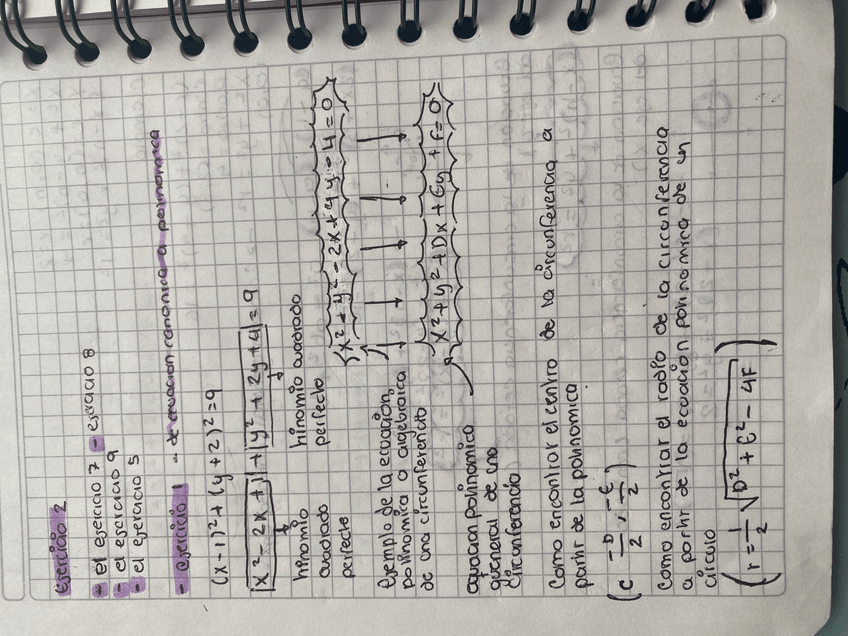 Ejercicio 2
- el ejercicio 7 - ejercicio 8
- el ejercicio 9
- el ejercicio 5
- ejercicio 1 - de ecuacion canonica a polinomica
(x-1)²+(y+2)²=9
|x²-2x+1|+|y²+2y+4|=9
binomio cuadrado perfecto
binomio cuadrado perfecto
x²+y²-2x+4y-4=0
Ejemplo de la ecuación,
polinomica o algebraica
de una circunferencia
x²+y²+Dx+Ey+F=0
ecuacion polinomica
general de una
circunferencia
Como encontrar el centro de la circunferencia a
partir de la polinomica
(c -D/2, -E/2)
Como encontrar el radio de la circunferencia
a partir de la ecuación polinomica de un
circulo
(r=1/2 √D²+E²-4F)